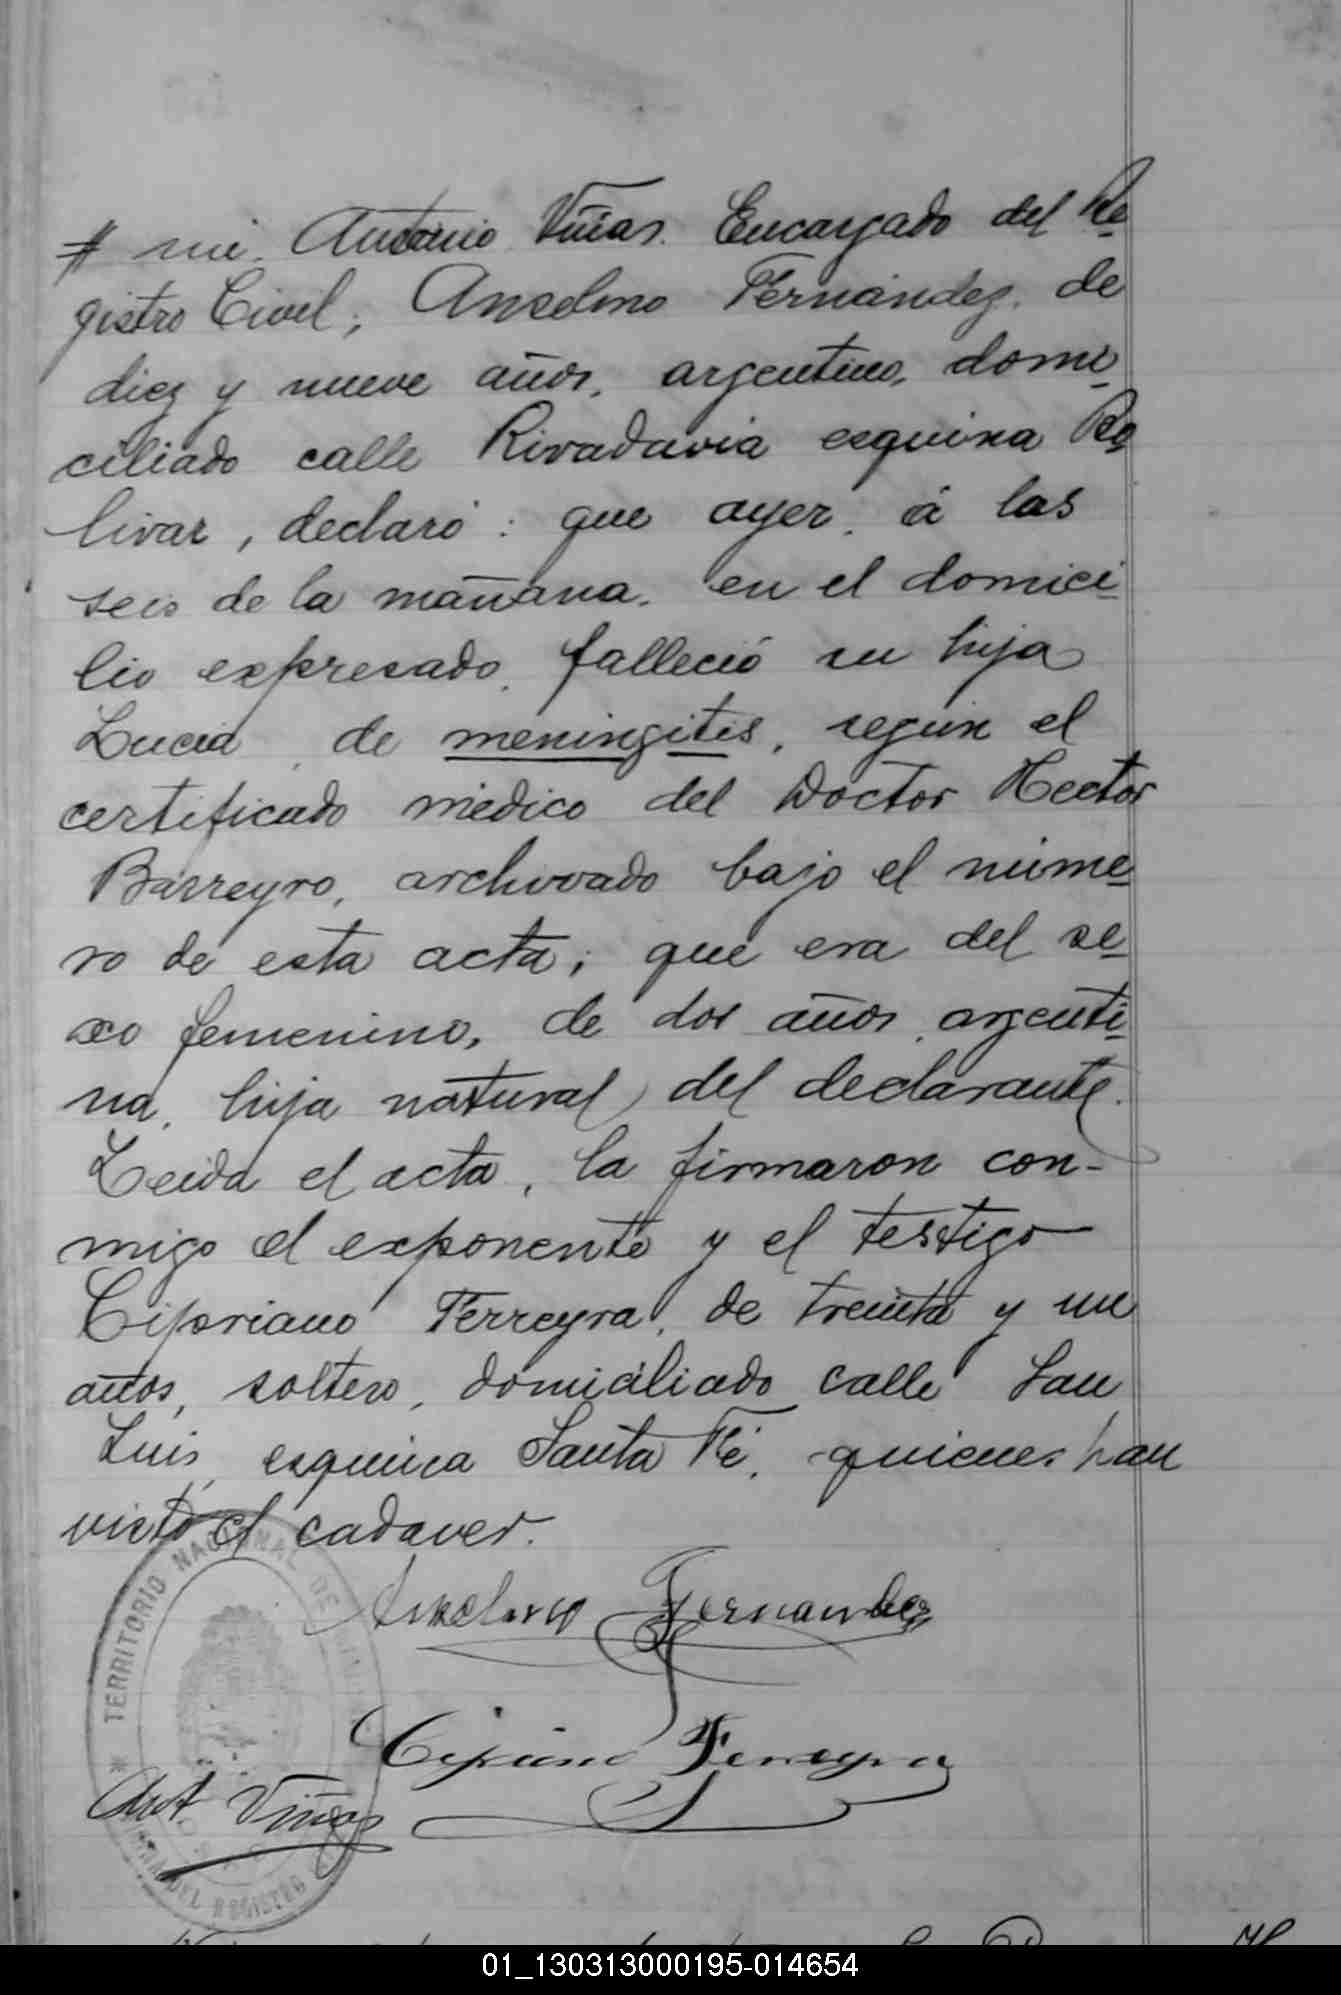 # mi. Antonio Viñas. Encargado del Re
gistro Civil, Anselmo Fernández. de
diez y nueve años, argentino, domi
ciliado calle Rivadavia esquina Bo
livar, declaró: que ayer, á las
seis de la mañana, en el domici
lio expresado, falleció su hija
Lucia, de meningitis, según el
certificado médico del Doctor Hector
Barreyro, archivado bajo el núme
ro de esta acta; que era del se
xo femenino, de dos años, argenti
na, hija natural del declarante.
Leida el acta, la firmaron con-
migo el exponente y el testigo
Cipriano Ferreyra, de treinta y un
años, soltero, domiciliado calle San
Luis, esquina Santa Fé, quienes han
visto el cadaver.
Anselmo Fernandez
Cipriano Ferreyra
Ant. Viñas
TERRITORIO NACIONAL DE
DEL REGISTRO
01_130313000195-014654